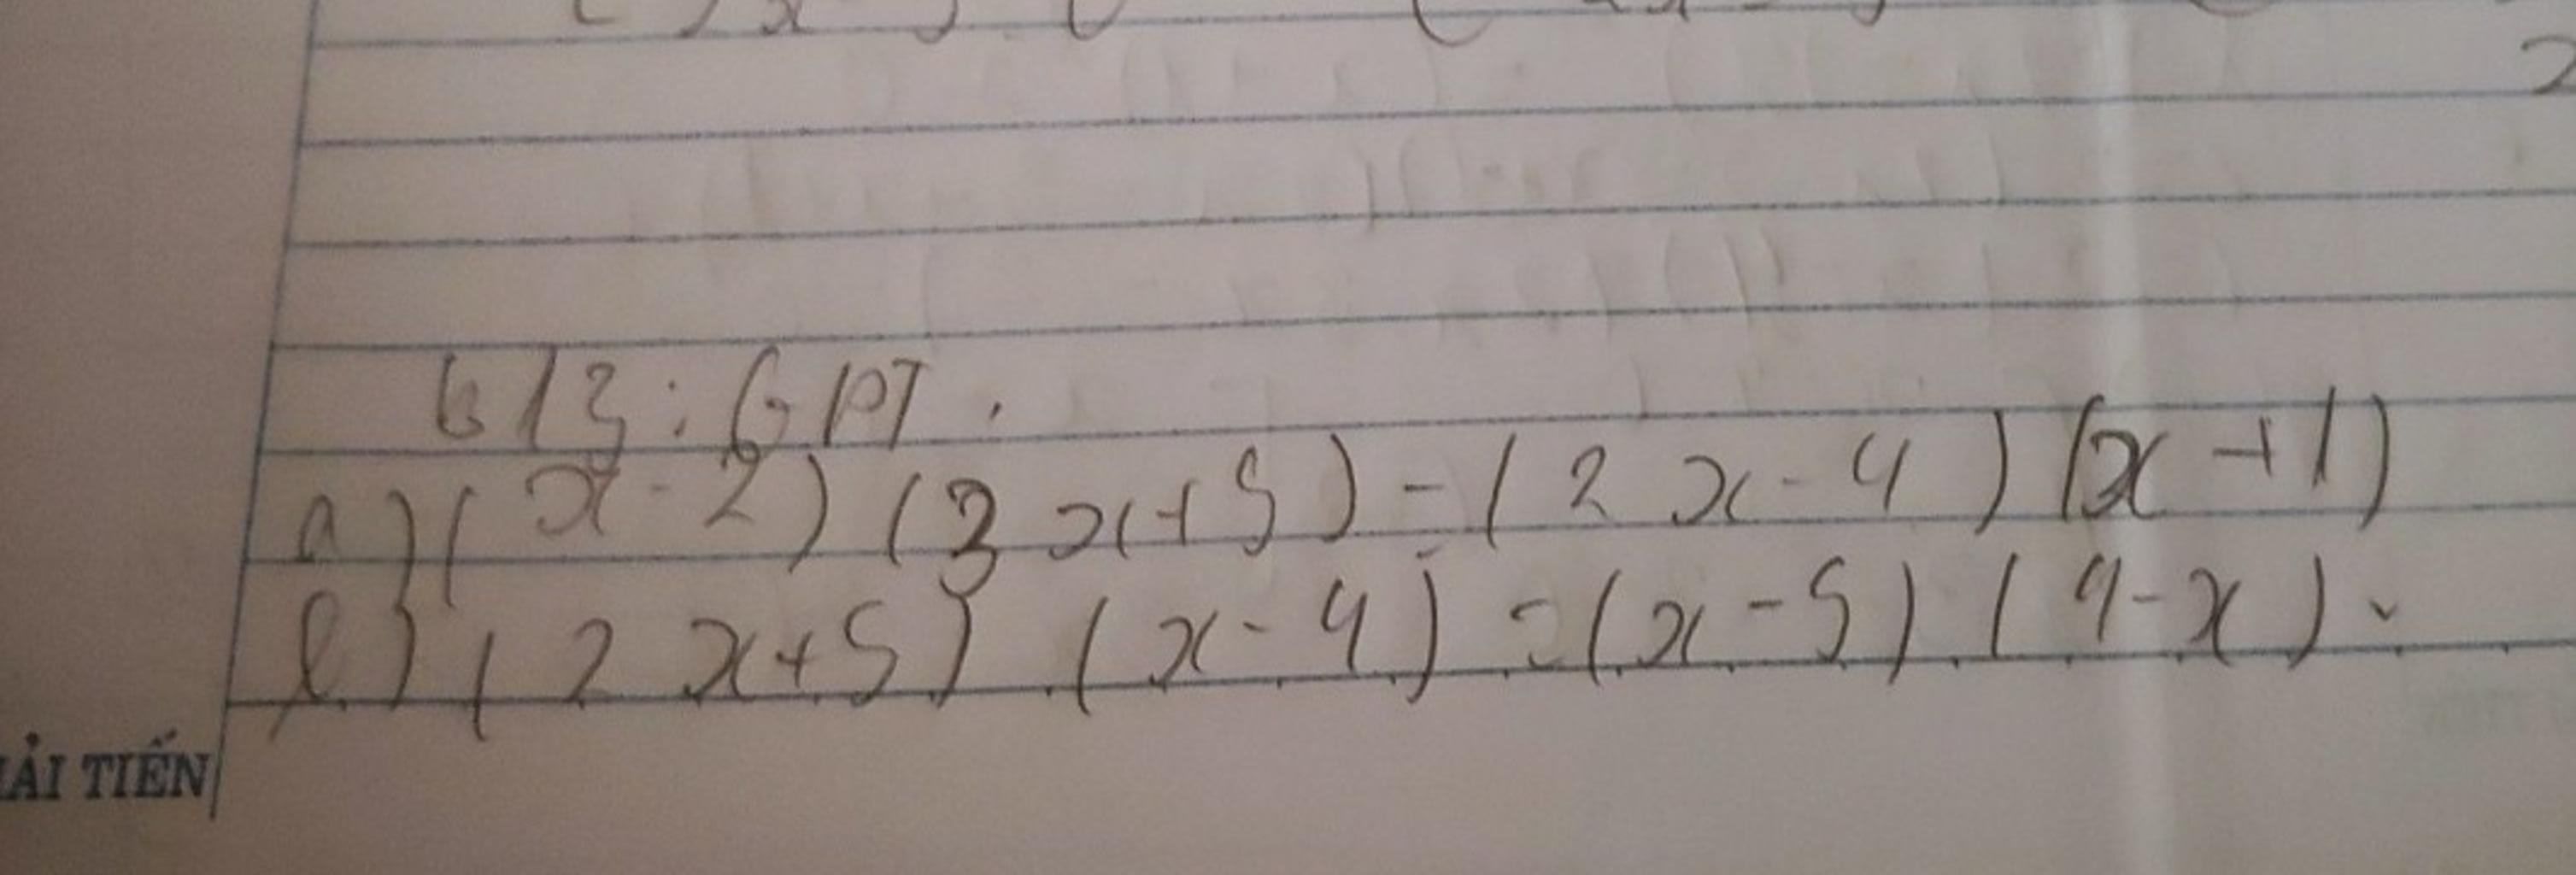 b13: GPT.
a) (x-2) (3x+5) = (2x-4) (x+1)
b) (2x+5) (x-4) = (x-5) (4-x).
ẢI TIẾN